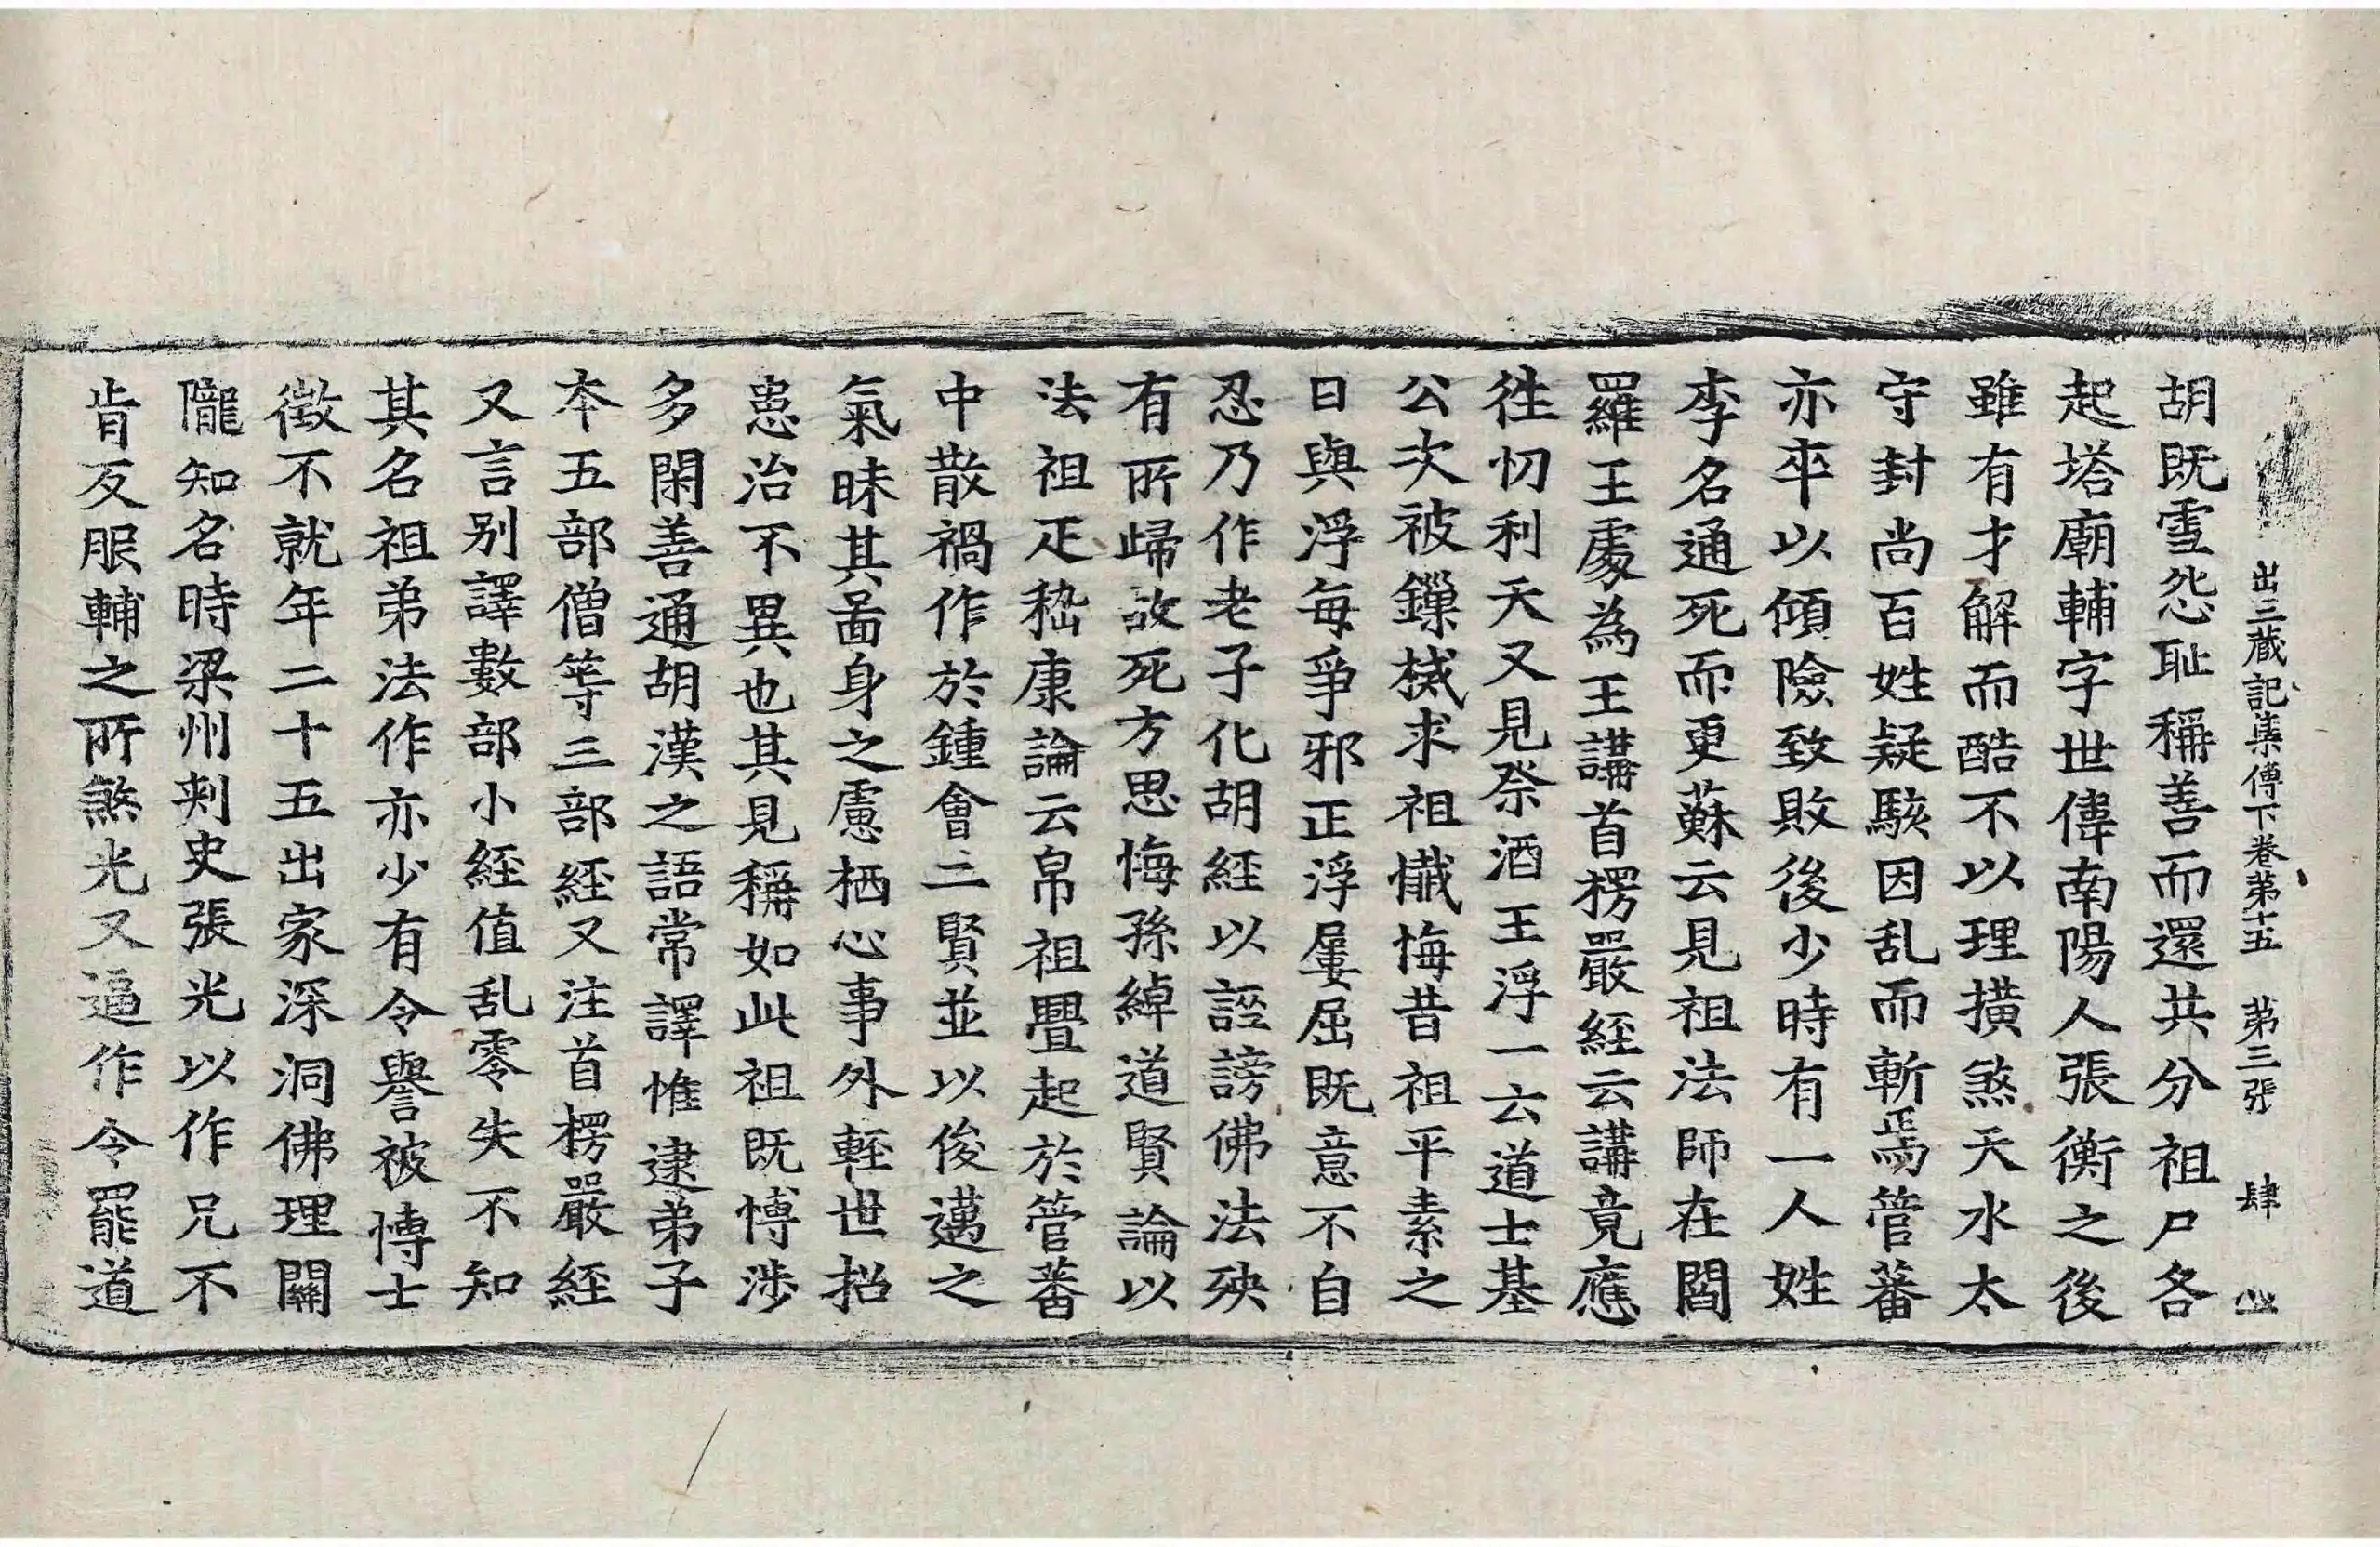 出三藏記集傳下卷第十五 第三張 肆
胡既雪怨耻稱善而還共分祖尸各
起塔廟輔字世偉南陽人張衡之後
雖有才解而酷不以理撗煞天水太
守封尚百姓疑駭因乱而斬焉管蕃
亦卒以傾險致敗後少時有一人姓
李名通死而更蘇云見祖法師在閻
羅王處為王講首楞嚴經云講竟應
往忉利天又見祭酒王浮一云道士基
公次被鏁械求祖懺悔昔祖平素之
日與浮每爭邪正浮屢屈既意不自
忍乃作老子化胡經以誣謗佛法殃
有所歸故死方思悔孫綽道賢論以
法祖疋嵇康論云帛祖舋起於管蕃
中散禍作於鍾會二賢並以俊邁之
氣昧其啚身之慮栖心事外輕世招
患治不異也其見稱如此祖既博涉
多閑善通胡漢之語常譯惟逮弟子
本五部僧等三部經又注首楞嚴經
又言别譯數部小經值乱零失不知
其名祖弟法作亦少有令譽被博士
徵不就年二十五出家深洞佛理關
隴知名時梁州刾史張光以作兄不
肯反服輔之所煞光又逼作令罷道